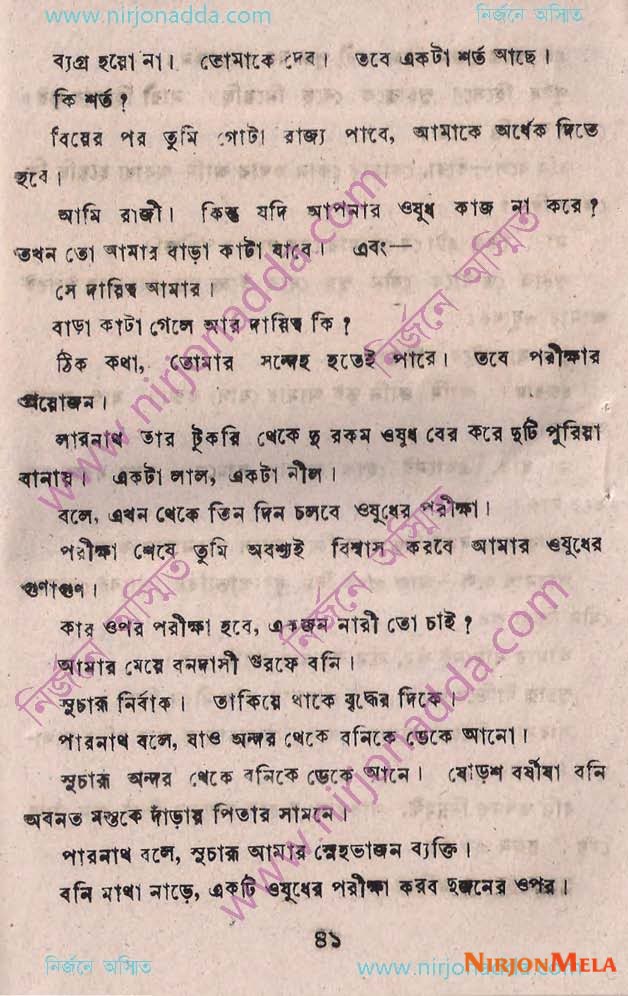 www.nirjonadda.com নির্জনে অস্মিত
ব্যগ্র হয়ো না। তোমাকে দেব। তবে একটা শর্ত আছে।
কি শর্ত?
বিয়ের পর তুমি গোটা রাজ্য পাবে, আমাকে অর্ধেক দিতে
হবে।
আমি রাজী। কিন্তু যদি আপনার ওষুধ কাজ না করে?
তখন তো আমার বাড়া কাটা যাবে। এবং—
সে দায়িত্ব আমার।
বাড়া কাটা গেলে আর দায়িত্ব কি?
ঠিক কথা, তোমার সন্দেহ হতেই পারে। তবে পরীক্ষার
প্রয়োজন।
লারনাথ তার টুকরি থেকে দু রকম ওষুধ বের করে দুটি পুরিয়া
বানায়। একটা লাল, একটা নীল।
বলে, এখন থেকে তিন দিন চলবে ওষুধের পরীক্ষা।
পরীক্ষা শেষে তুমি অবশ্যই বিশ্বাস করবে আমার ওষুধের
গুণাগুণ।
কার ওপর পরীক্ষা হবে, একজন নারী তো চাই?
আমার মেয়ে বনদাসী ওরফে বনি।
সুচারু নির্বাক। তাকিয়ে থাকে বৃদ্ধের দিকে।
পারনাথ বলে, যাও অন্দর থেকে বনিকে ডেকে আনো।
সুচারু অন্দর থেকে বনিকে ডেকে আনে। ষোড়শ বর্ষীয়া বনি
অবনত মস্তকে দাঁড়ায় পিতার সামনে।
পারনাথ বলে, সুচারু আমার স্নেহভাজন ব্যক্তি।
বনি মাথা নাড়ে, একটি ওষুধের পরীক্ষা করব দুজনের ওপর।
৪১
নির্জনে অস্মিত www.nirjonadda.com
NIRJONMELA
www.nirjonadda.com
নির্জনে অস্মিত
নির্জনে অস্মিত
নির্জনে অস্মিত
www.nirjonadda.com